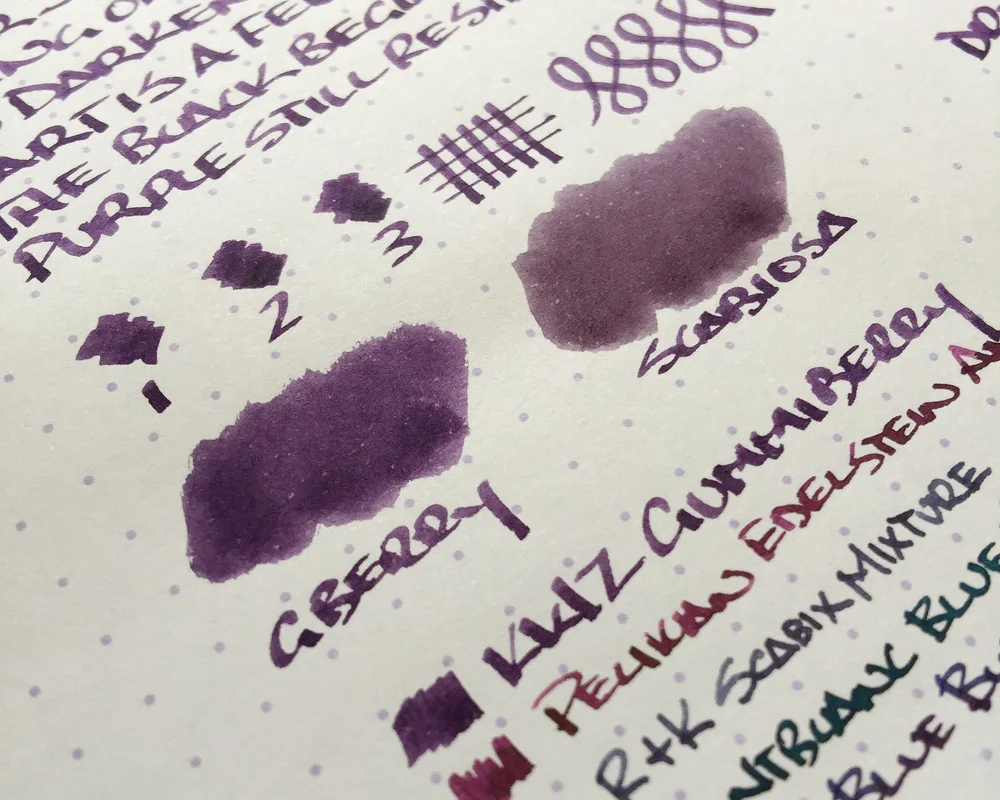 DARKER
ART IS A FE
THE BLACK BEG
PURPLE STILL RES
1
2
3
SCABIOSA
GBERRY
KKIZ GUMMIBERRY
PELIKAN EDELSTEIN
R+K SCABIX MIXTURE
NTBLANC BLUE
BLUE